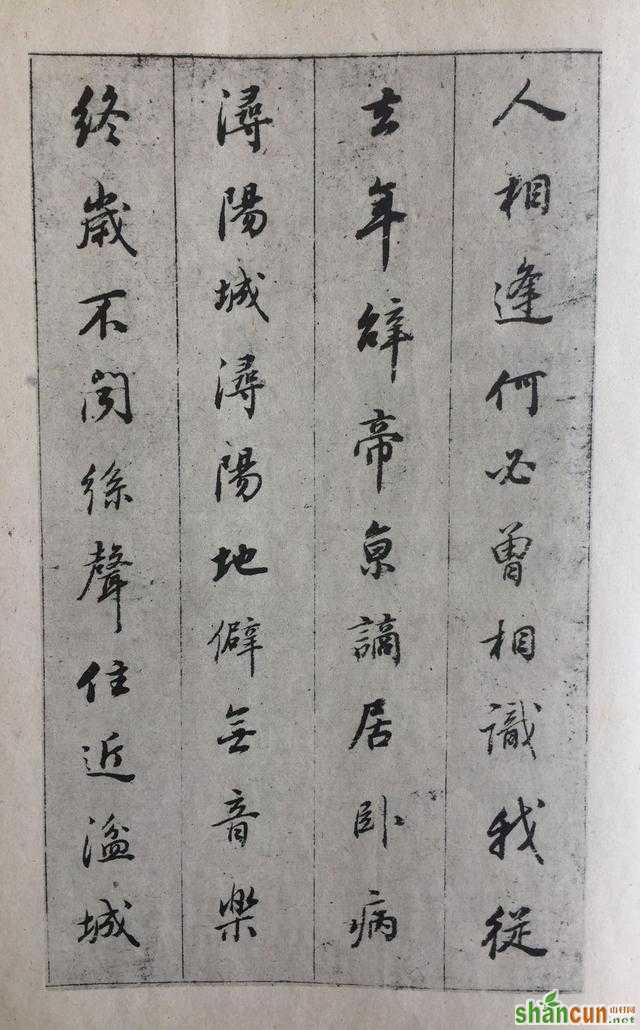 人相逢何必曾相識我從
去年辭帝京謫居卧病
潯陽城潯陽地僻無音樂
終歲不聞絲聲住近湓城
shancun山村网
.net